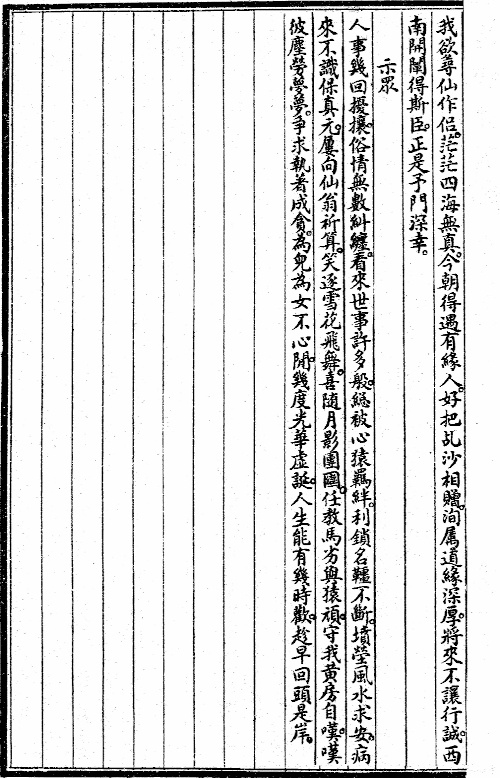 我欲尋仙作侶。茫茫四海無真。今朝得遇有緣人。好把乩沙相贈。洵屬道緣深厚。將來不讓行誠。西
南開闡得斯臣。正是予門深幸。
示眾
人事幾回擾攘。俗情無數糾纏。看來世事許多般。總被心猿羈絆。利鎖名韁不斷。墳塋風水求安。病
來不識保真元。屢向仙翁祈算。笑逐雪花飛舞。喜隨月影團圞。任教馬劣與猿頑。守我黄房自嘆。嘆
彼塵勞夢夢。爭求執著成貪。為兒為女不心閒。幾度光華虛誕。人生能有幾時歡。趁早回頭是岸。